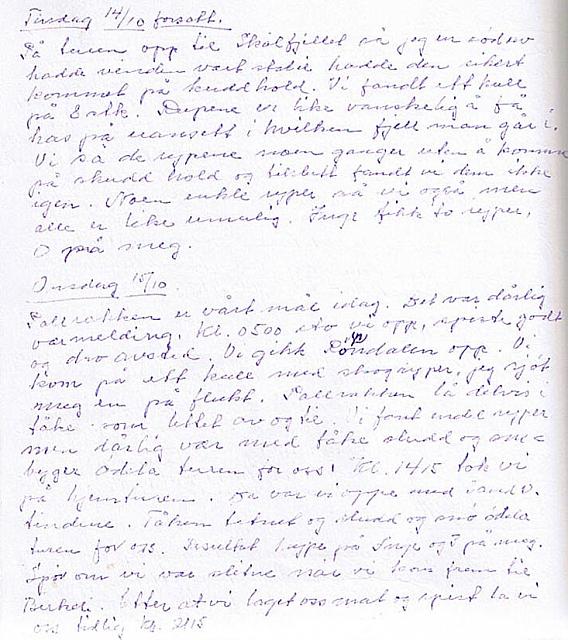 Tirsdag 14/10 forsatt.
På turen opp til Skålfjellet så jeg en
hadde vinden vært stabil hadde den sikert
kommet på skuddhold. Vi fandt ett kull
på 8 stk. Rypene er like vanskelig å få
has på uansett i hvilken fjell man går i.
Vi så de rypene noen ganger uten å komme
på skudd hold og tilslutt fandt vi dem ikke
igen. Noen enkle ryper så vi også men
alle er like umulig. Inge fikk to ryper,
0 på meg.
Onsdag 15/10.
er vårt mål idag. Det var dårlig
værmelding. Kl. 0500 sto vi opp, spiste godt
og dro avsted. Vi gikk opp. Vi
kom på ett kull med skogryper, jeg sjøt
meg en på flukt. lå delvis i
tåke som lettet av og til. Vi fant endel ryper
men dårlig vær med tåke sludd og snø-
byger ødela turen for oss! Kl. 1415 tok vi
på hjemturen. Da var vi oppe med
tindene. Tåken tetnet og sludd og snø ødela
turen for oss. Resultat 1 rype på Inge og på meg.
Spør om vi var slitne når vi kom frem til
Etter at vi laget oss mat og spist la vi
oss tidlig kl. 2115